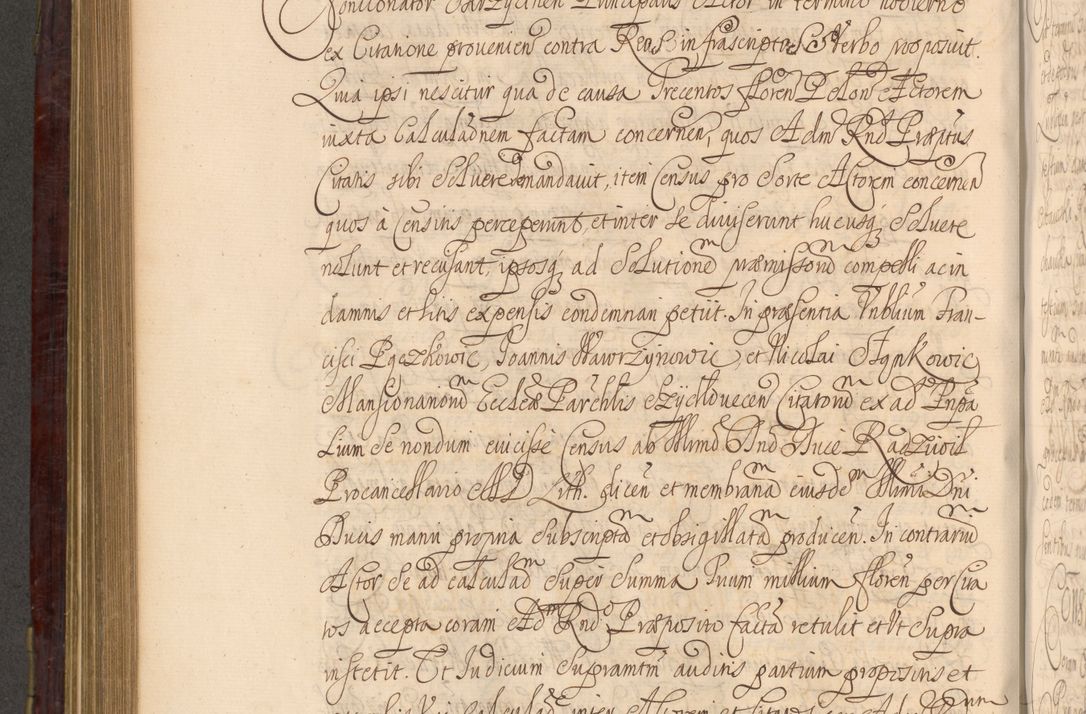 Concionator Garzycnen Principalis Actor in termino hodierno
ex Citanone provenien contra Reos infrascriptos Verbo proposuit.
Quia ipsi nescitur qua de causa Trecentos floren Polon Actorem
iuxta Calculãnem factam concernen, quos Adm Rnd Præptus
Citatis sibi Solvere mandavit, item Census pro Sorte Actorem concernen
quos à Censitis perceperunt, et inter se diviserunt hucusq Solvere
nolunt et recusant, ipsosq ad Solutionem præmissorum compelli ac in
damnis et litis expensis condemnari petiit. In præsentia Vnblium Fran-
cisci Pączkowic, Joannis Wawrzynowic, et Nicolai
Mansionariorum Eccleæ Parchlis Citatorum ex ad
lium se nondum evicisse Census ab Illmo Dno Duce Radziwił
Procancellario M D Lith. dicen et membranam eiusdem Illmi Dni
Ducis manu propria Subscriptam et obsigillatam producen. In contrarium
Actor se ad calculãm Super Summa Duum millium floren per Cita
tos accepta coram Adm Rndo Præposito factã retulit et Vt Supra
institit. Et Iudicium Supramtm auditis partium propositis et
Calculãe inter Actorem et Citatos